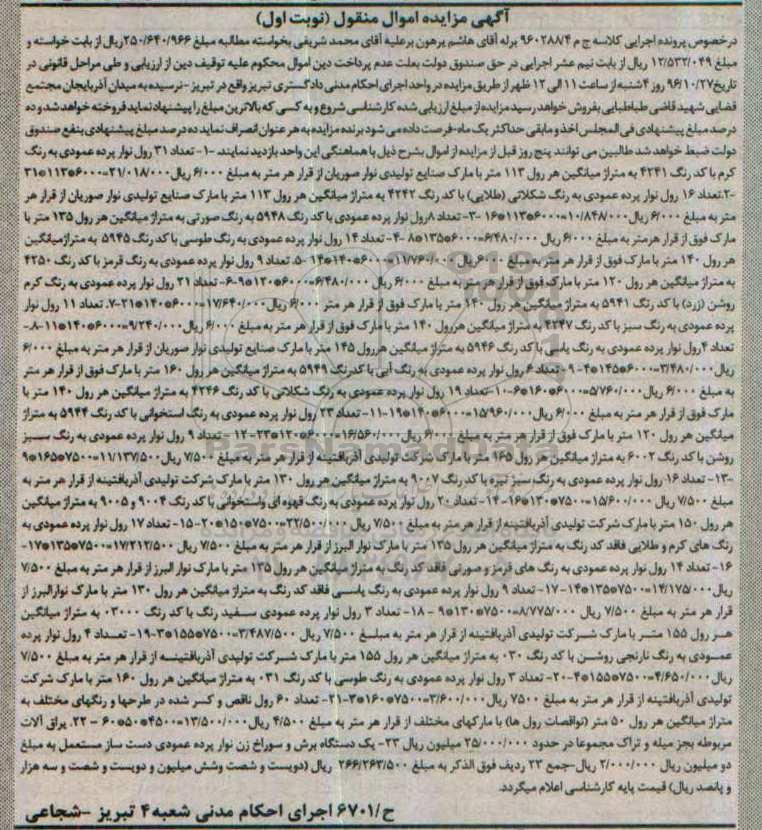 آگهی مزایده اموال منقول (نوبت اول)
درخصوص پرونده اجرایی کلاسه ج م ۹۶۰۲۸۸/۴ برله آقای هاشم پرهون برعلیه آقای محمد شریفی بخواسته مطالبه مبلغ ۲۵۰/۶۴۰/۹۶۶ریال از بابت خواسته و
مبلغ ۱۲/۵۳۲/۰۴۹ ریال از بابت نیم عشر اجرایی در حق صندوق دولت بعلت عدم پرداخت دین اموال محکوم علیه توقیف دین از ارزیابی و طی مراحل قانونی در
تاریخ۹۶/۱۰/۲۷ روز ۴شنبه از ساعت ۱۱ الی ۱۲ ظهر از طریق مزایده در واحد اجرای احکام مدنی دادگستری تبریز واقع در تبریز -نرسیده به میدان آذربایجان مجتمع
قضایی شهید قاضی طباطبایی بفروش خواهد رسید مزایده از مبلغ ارزیابی شده کارشناسی شروع و به کسی که بالاترین مبلغ را پیشنهاد نماید فروخته خواهد شد و ده
درصد مبلغ پیشنهادی فی المجلس اخذ و مابقی حداکثر یک ماه-فرصت داده می شود برنده مزایده به هر عنوان انصراف نماید ده درصد مبلغ پیشنهادی بنفع صندوق
دولت ضبط خواهد شد طالبین می توانند پنج روز قبل از مزایده از اموال بشرح ذیل با هماهنگی این واحد بازدید نمایند. -۱- تعداد ۳۱ رول نوار پرده عمودی به رنگ
کرم با کد رنگ ۴۲۴۱ به متراژ میانگین هر رول ۱۱۳ متر با مارک صنایع تولیدی نوار صوریان از قرار هر متر به مبلغ ۶/۰۰۰ ریال ۲۱/۰۱۸/۰۰۰=۶۰۰۰*۱۱۳*۳۱
-۲.تعداد ۱۶ رول نوار پرده عمودی به رنگ شکلاتی (طلایی) با کد رنگ ۴۲۴۲ به متراژ میانگین هر رول ۱۱۳ متر با مارک صنایع تولیدی نوار صوریان از قرار هر
متر به مبلغ ۶/۰۰۰ ریال ۱۰/۸۴۸/۰۰۰=۶۰۰۰*۱۱۳*۱۶ -۳- تعداد ۸رول نوار پرده عمودی با کد رنگ ۵۹۴۸ به رنگ صورتی به متراژ میانگین هر رول ۱۳۵ متر با
مارک فوق از قرار هرمتر به مبلغ ۶/۰۰۰ ریال ۶/۴۸۰/۰۰۰=۶۰۰۰*۱۳۵*۸ -۴- تعداد ۱۴ رول نوار پرده عمودی به رنگ طوسی با کد رنگ ۵۹۴۵ به متراژ میانگین
هر رول ۱۴۰ متر با مارک فوق از قرار هر متر به مبلغ ۶۰۰۰ ریال ۱۱/۷۶۰/۰۰۰=۶۰۰۰*۱۴۰*۱۴ -۵. تعداد ۹ رول نوار پرده عمودی به رنگ قرمز با کد رنگ ۴۲۵۰
به متراژ میانگین هر رول ۱۲۰ متر با مارک فوق از قرار هر متر به مبلغ ۶/۰۰۰ ریال ۶/۴۸۰/۰۰۰=۶۰۰۰*۱۲۰*۹-۶- تعداد ۲۱ رول نوار پرده عمودی به رنگ کرم
روشن (زرد) با کد رنگ ۵۹۴۱ به متراژ میانگین هر رول ۱۴۰ متر با مارک فوق از قرار هر متر ۶/۰۰۰ ریال ۱۷/۶۴۰/۰۰۰=۶۰۰۰*۱۴۰*۲۱-۷. تعداد ۱۱ رول نوار
پرده عمودی به رنگ سبز با کد رنگ ۴۲۴۷ به متراژ میانگین هررول ۱۴۰ متر با مارک فوق از قرار هر متر به مبلغ ۶/۰۰۰ ریال ۹/۲۴۰/۰۰۰=۶۰۰۰*۱۴۰*۱۱-۸-
تعداد ۴رول نوار پرده عمودی به رنگ یاسی با کد رنگ ۵۹۴۶ به متراژ میانگین هررول ۱۴۵ متر با مارک صنایع تولیدی نوار صوریان از قرار هر متر به مبلغ ۶/۰۰۰
ریال ۳/۴۸۰/۰۰۰=۶۰۰۰*۱۴۵*۴-۹- تعداد ۶ رول نوار پرده عمودی به رنگ آبی با کدرنگ ۵۹۴۹ به متراژ میانگین هر رول ۱۶۰ متر با مارک فوق از قرار هر متر
به مبلغ ۶/۰۰۰ ریال ۵/۷۶۰/۰۰۰=۶۰۰۰*۱۶۰*۶-۱۰-تعداد ۱۹ رول نوار پرده عمودی به رنگ شکلاتی با کد رنگ ۴۲۴۶ به متراژ میانگین هر رول ۱۴۰ متر با
مارک فوق از قرار هر متر به مبلغ ۶/۰۰۰ ریال ۱۵/۹۶۰/۰۰۰=۶۰۰۰*۱۴۰*۱۹-۱۱- تعداد ۲۳ رول نوار پرده عمودی به رنگ استخوانی با کد رنگ ۵۹۴۴ به متراژ
میانگین هر رول ۱۲۰ متر با مارک فوق از قرار هر متر به مبلغ ۶/۰۰۰ ریال ۱۶/۵۶۰/۰۰۰=۶۰۰۰*۱۲۰*۲۳-۱۲- تعداد ۹ رول نوار پرده عمودی به رنگ سبز
روشن با کد رنگ ۶۰۰۲ به متراژ میانگین هر رول ۱۶۵ متر با مارک شرکت تولیدی آذربافتینه از قرار هر متر به مبلغ ۷/۵۰۰ ریال ۱۱/۱۳۷/۵۰۰=۷۵۰۰*۱۶۵*۹
-۱۳- تعداد ۱۶ رول نوار پرده عمودی به رنگ سبز تیره با کد رنگ ۹۰۰۷ به متراژ میانگین هر رول ۱۳۰ متر با مارک شرکت تولیدی آذربافتینه از قرار هر متر به
مبلغ ۷/۵۰۰ ریال ۱۵/۶۰۰/۰۰۰=۷۵۰۰*۱۳۰*۱۶-۱۴- تعداد ۲۰ رول نوار پرده عمودی به رنگ قهوه ای واستخوانی با کد رنگ ۹۰۰۴ و ۹۰۰۵ به متراژ میانگین
هر رول ۱۵۰ متر با مارک شرکت تولیدی آذربافتینه از قرار هر متر به مبلغ ۷/۵۰۰ ریال ۲۲/۵۰۰/۰۰۰=۷۵۰۰*۱۵۰*۲۰-۱۵- تعداد ۱۷ رول نوار پرده عمودی به
رنگ های کرم و طلایی فاقد کد رنگ به متراژ میانگین هر رول ۱۳۵ متر با مارک نوار البرز از قرار هر متر به مبلغ ۷/۵۰۰ ریال ۱۷/۲۱۲/۵۰۰=۷۵۰۰*۱۳۵*۱۷-
۱۶- تعداد ۱۴ رول نوار پرده عمودی به رنگ های قرمز و صورتی فاقد کد رنگ به متراژ میانگین هر رول ۱۳۵ متر با مارک نوار البرز از قرار هر متر به مبلغ ۷/۵۰۰
ریال ۱۴/۱۷۵/۰۰۰=۷۵۰۰*۱۳۵*۱۴-۱۷- تعداد ۹ رول نوار پرده عمودی به رنگ یاسی فاقد کد رنگ به متراژ میانگین هر رول ۱۳۰ متر با مارک نوارالبرز از
قرار هر متر به مبلغ ۷/۵۰۰ ریال ۸/۷۷۵/۰۰۰=۷۵۰۰*۱۳۰*۹ - ۱۸- تعداد ۳ رول نوار پرده عمودی سفید رنگ با کد رنگ ۰۳۰۰۰ به متراژ میانگین
هر رول ۱۵۵ متر با مارک شرکت تولیدی آذربافتینه از قرار هر متر به مبلغ ۷/۵۰۰ ریال ۳/۴۸۷/۵۰۰=۷۵۰۰*۱۵۵*۳-۱۹- تعداد ۴ رول نوار پرده
عمودی به رنگ نارنجی روشن با کد رنگ ۰۳۰ به متراژ میانگین هر رول ۱۵۵ متر با مارک شرکت تولیدی آذربافتینه از قرار هر متر به مبلغ ۷/۵۰۰
ریال ۴/۶۵۰/۰۰۰=۷۵۰۰*۱۵۵*۴-۲۰- تعداد ۳ رول نوار پرده عمودی به رنگ طوسی با کد رنگ ۰۳۱ به متراژ میانگین هر رول ۱۶۰ متر با مارک شرکت
تولیدی آذربافتینه از قرار هر متر به مبلغ ۷۵۰۰ ریال ۳/۶۰۰/۰۰۰=۷۵۰۰*۱۶۰*۳-۲۱- تعداد ۶۰ رول ناقص و کسر شده در طرحها و رنگهای مختلف به
متراژ میانگین هر رول ۵۰ متر (نواقصات رول ها) با مارکهای مختلف از قرار هر متر به مبلغ ۴/۵۰۰ ریال ۱۳/۵۰۰/۰۰۰=۴۵۰۰*۵۰*۶۰ - ۲۲. یراق آلات
مربوطه بجز میله و تراک مجموعا در حدود ۲۵/۰۰۰/۰۰۰ میلیون ریال ۲۳- یک دستگاه برش و سوراخ زن نوار پرده عمودی دست ساز مستعمل به مبلغ
دو میلیون ریال ۲/۰۰۰/۰۰۰ ریال-جمع ۲۳ ردیف فوق الذکر به مبلغ ۲۶۶/۲۶۳/۵۰۰ ریال (دویست و شصت وشش میلیون و دویست و شصت و سه هزار
و پانصد ریال) قیمت پایه کارشناسی اعلام میگردد.
ح/۶۷۰۱ اجرای احکام مدنی شعبه ۴ تبریز -شجاعی